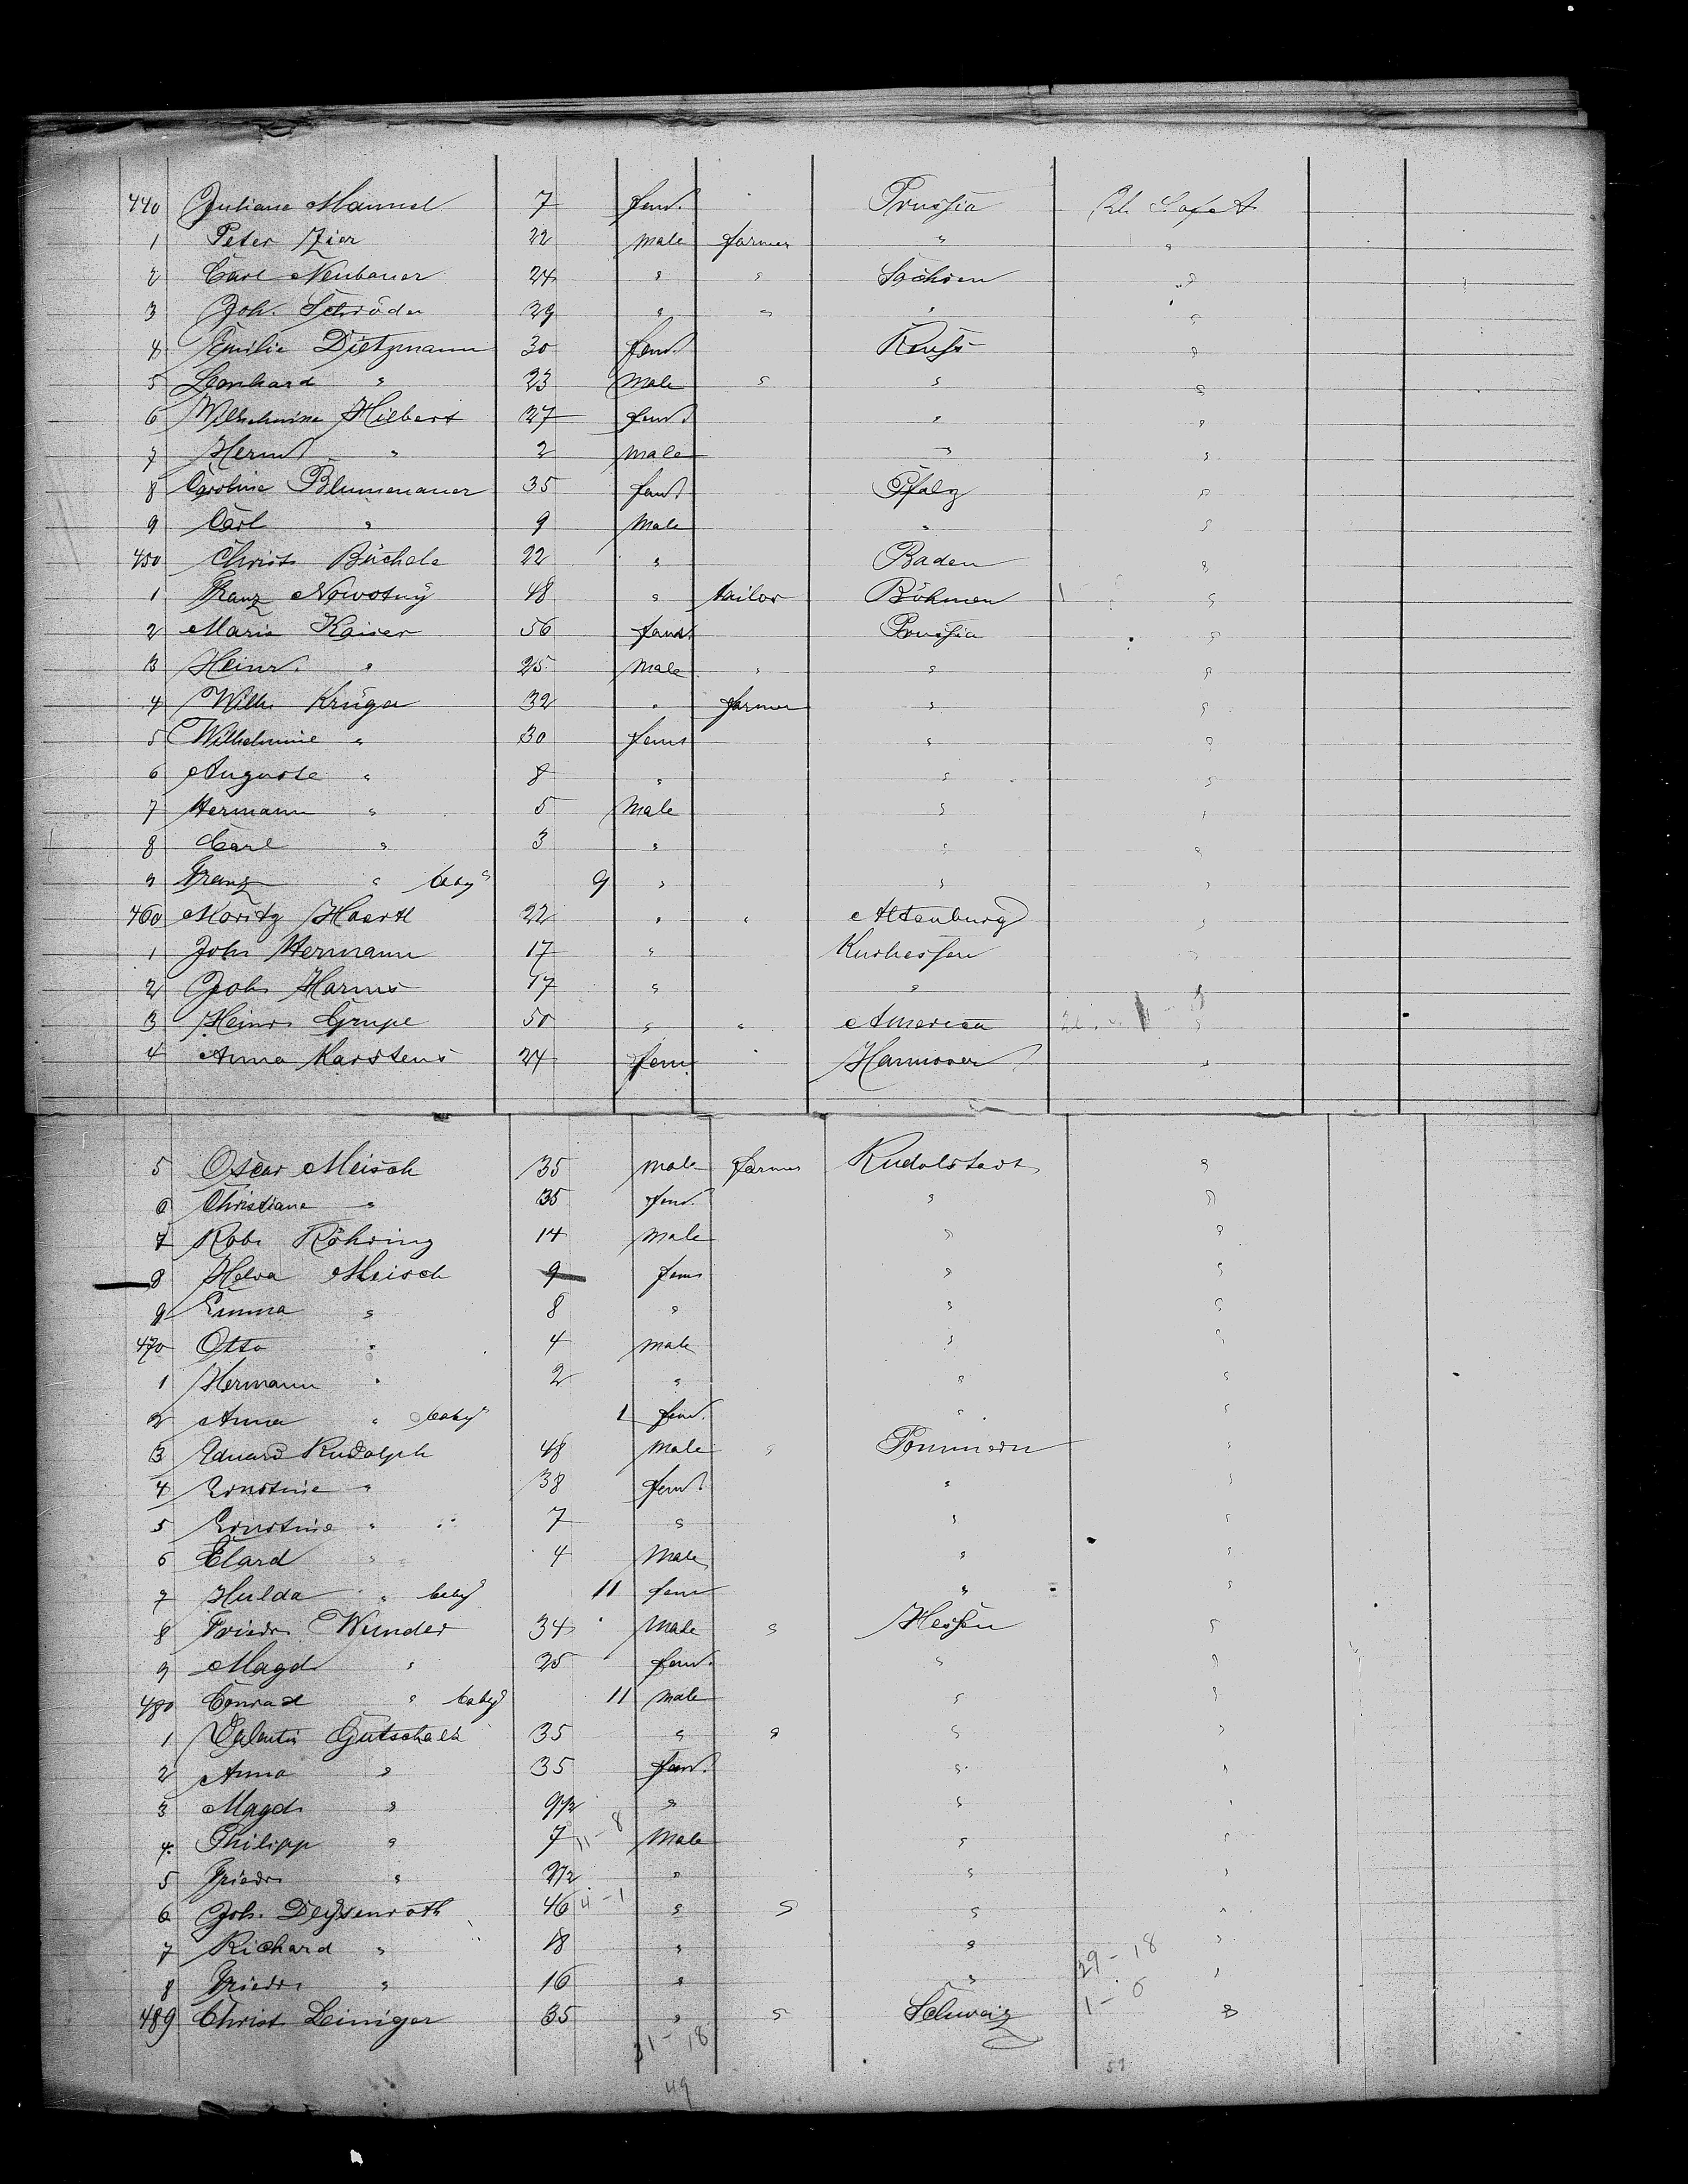 440 Juliane Mannel 7 fem. " Prussia
1 Peter Zier 22 male farmer " "
2 Carl Neubauer 24 " " Sachsen "
3 Joh. Schröder 29 " " " "
4 Emilie Dietzmann 30 fem. Reuss "
5 Leonhard " 23 male " " "
6 Wilhelmine Hilbert 27 fem. " "
7 Herm. " 2 male " "
8 Caroline Blumenauer 35 fem. Pfalz "
9 Carl " 9 male " "
450 Christ. Büchele 22 " Baden "
1 Franz Nowotny 48 " tailor Böhmen 1 "
2 Maria Kaiser 56 fem. Prussia "
3 Heinr. " 25 male " " "
4 Wilh. Krüger 32 " farmer " "
5 Wilhelmine " 30 fem. " "
6 Auguste " 8 " " "
7 Hermann " 5 male " "
8 Carl " 3 " " "
9 Franz " baby 9 " " "
460 Moritz 22 " " Altenburg "
1 Joh. Hermann 17 " Kurhessen "
2 Joh. Harms 17 " " "
3 Heinr. Grupe 50 " " America "
4 Anna Karstens 24 fem. " Hannover "
5 Oscar Meisch 35 male farmer Rudolstadt "
6 Christiane " 35 fem. " "
7 Rob. Röhring 14 male " "
8 Meisch 9 fem. " "
9 Emma " 8 " " "
470 Otto " 4 male " "
1 Hermann " 2 " " "
2 Anna " baby 1 fem. " "
3 Eduard Rudolph 48 male " Pommern "
4 Ernstine " 38 fem. " "
5 Ernstine " 7 " " "
6 Elard " 4 male " "
7 Hulda " baby 11 fem " "
8 Friedr. Wunder 34 male " Hessen "
9 Magd. " 25 fem. " "
480 Conrad " baby 11 male " "
1 Valentin Gutschalk 35 " " " "
2 Anna " 35 fem. " "
3 Magd. " 9½ " " "
4 Philipp " 7 11-8 male " "
5 Friedr. " 2½ " " "
6 Joh. Deysenroth 46 4-1 " " " "
7 Richard " 18 " " 29-18 "
8 Friedr. " 16 " " 1-0 "
489 Christ Leiniger 35 " " Schweiz "
31-18
49 51